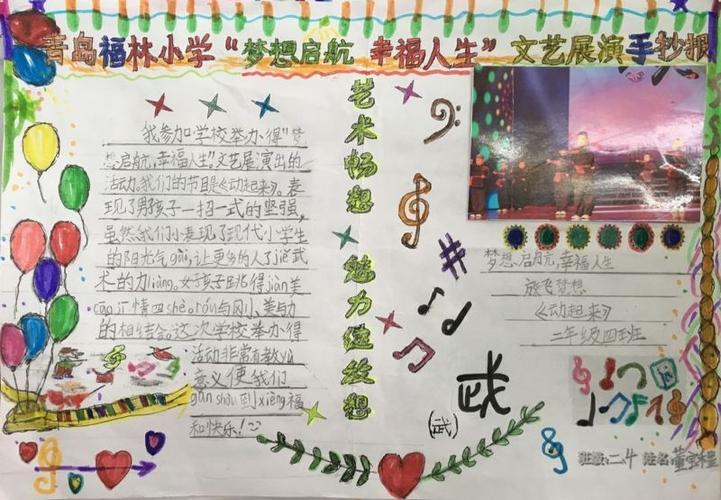 青岛福林小学“梦想启航 幸福人生”文艺展演手抄报
我参加学校举办得“梦
想启航,幸福人生”文艺展演出的
活动。我们的节目是《动起来》。表
现了男孩子一招一式的坚强,
虽然我们小表现了现代小学生
的阳光气gài,让更多的人了jiě武
术的力liàng。女孩子跳得jiàn美
cāo
的相结合。这次学校举办得
活动非常有教yù
意义使我们
gǎn shòu到xìng福
和快乐!
艺术畅想
魅力
梦想启航,幸福人生
放飞梦想
《动起来》
二年级四班
武
(武)
班级:二、4 姓名:董